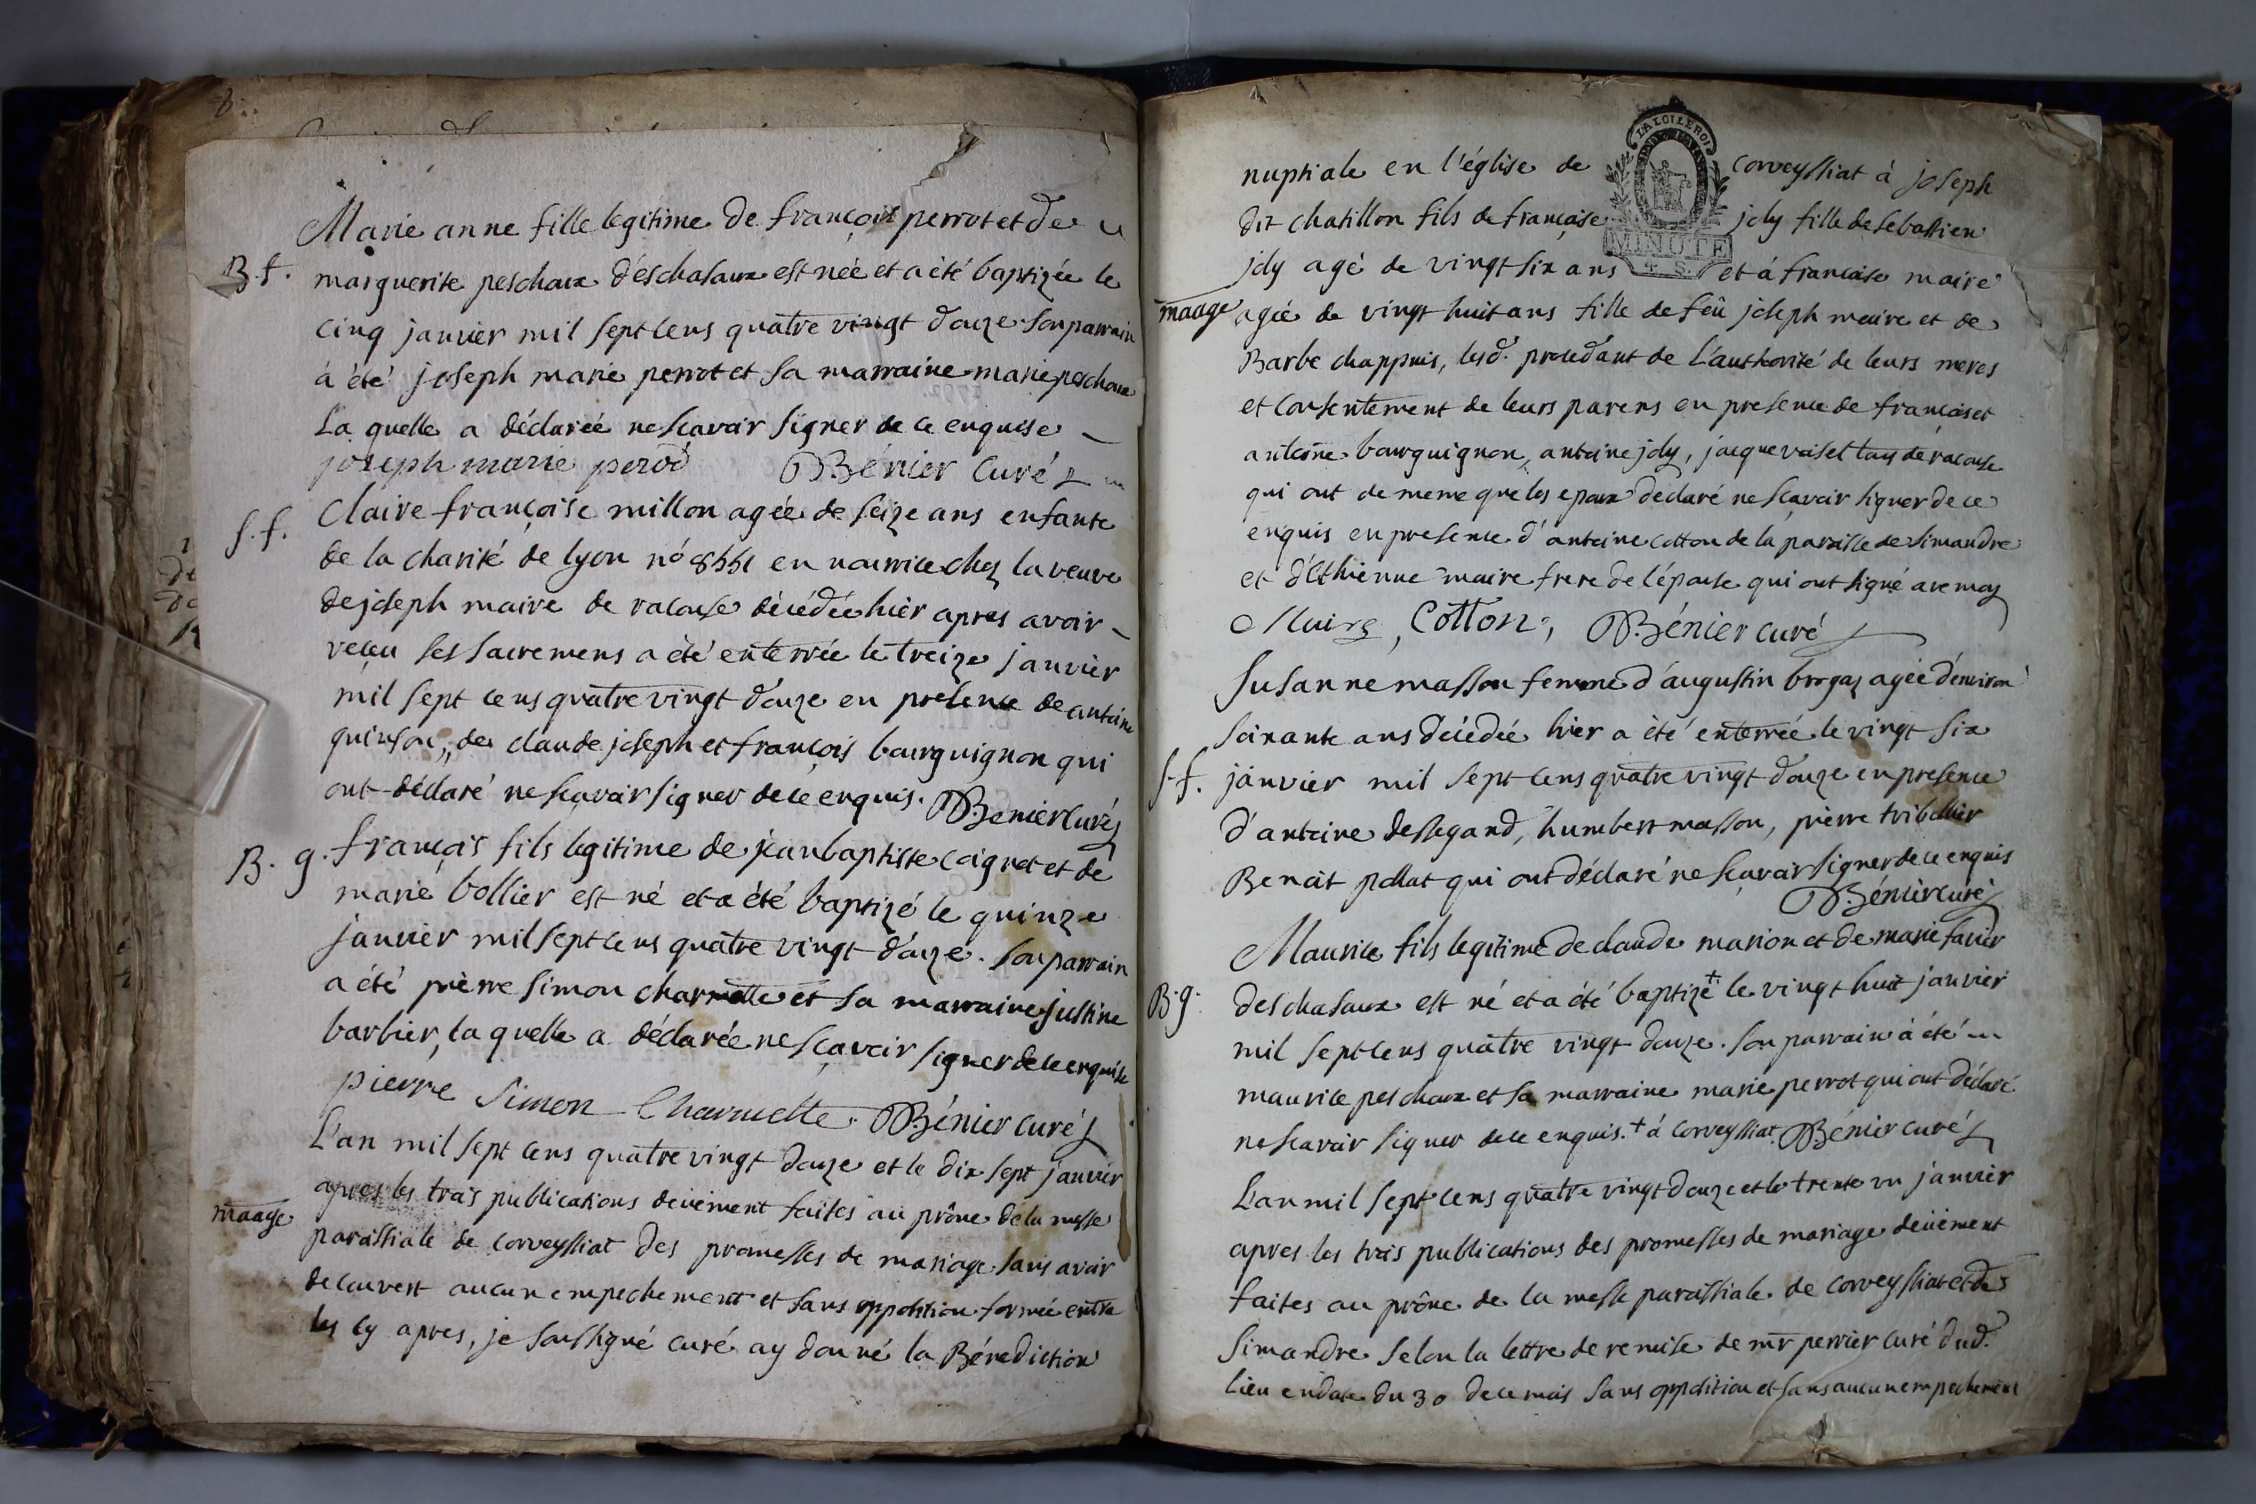 8
Marie anne fille legitime de françois perrot et de
B. f.
marguerite peschaux d'eschasaux est née et a été baptizée le
cinq janvier mil sept cens quatre vingt douze. son parrain
à été joseph marie perrot et sa marraine marie peschaux
La quelle a déclarée ne scavoir signer de ce enquise
joseph marie perod Bénier curé
S. f.
Claire françoise millon agée de seize ans enfante
de la charité de lyon nó en nourrice chez la veuve
de joseph maire de racouse décédée hier apres avoir
reçeu ses sacremens a été enterrée le treize janvier
mil sept cens quatre vingt douze en presence de antoine
quinson, de claude joseph et françois bourguignon qui
ont déclaré ne sçavoir signer de ce enquis. Benier curé
B. g.
françois fils legitime de jean baptiste coignet et de
marie bollier est né et a été baptizé le quinze
janvier mil sept cens quatre vingt douze. son parrain
a été pierre simon charmette et sa marraine justine
barbier, la quelle a déclarée ne sçavoir signer de ce enquise
pierre Simon Charmette. Bénier curé
L'an mil sept cens quatre vingt douze et le dix sept janvier
apres les trois publications deüement faites au prône de la messe
maage
paroissiale de corveyssiat des promesses de mariage sans avoir
decouvert aucun empechement et sans opposition formée entre
les cy apres, je soussigné curé ay donné la Bénediction
LA LOI LE ROI
MINUTE
4. S.
nuptiale en l'église de corveyssiat à joseph
dit chatillon fils de françoise joly fille de sebastien
joly agé de vingt six ans et à francoise maire
maage
agée de vingt huit ans fille de feû joseph maire et de
Barbe chappuis, lesd. procedant de L'authorité de leurs meres
et consentement de leurs parens en presence de francois et
antoine bourguignon, antoine joly, jacque tous de racouse
qui ont de meme que les epoux déclaré ne sçavoir signer de ce
enquis en presence d'antoine cotton de la paroisse de simandre
et d'Ethienne maire frere de l'épouse qui ont signé avec moy
Maire, Cotton, Bénier curé
Susanne masson femme d'augustin brogaz agée d'environ
soixante ans décédée hier a été enterrée le vingt six
S. f.
janvier mil sept cens quatre vingt douze en presence
d'antoine dessegand, humbert masson, pierre tribollier
Benoit pollat qui ont déclaré ne sçavoir signer de ce enquis
Bénier curé
Maurice fils legitime de claude marion et de marie favier
B. g.
deschasaux est né et a été baptizé + le vingt huit janvier
mil sept cens quatre vingt douze. son parrain à été
maurice peschaux et sa marraine marie perrot qui ont déclaré
ne scavoir signer de ce enquis. + à corveyssiat Bénier curé
L'an mil sept cens quatre vingt douze et le trente un janvier
apres les trois publications des promesses de mariage deüement
faites au prône de la messe paroissiale de corveyssiat et de
Simandre selon la lettre de remise de mr perrier curé dud.
lieu en date du 30 de ce mois sans opposition et sans aucun empechement